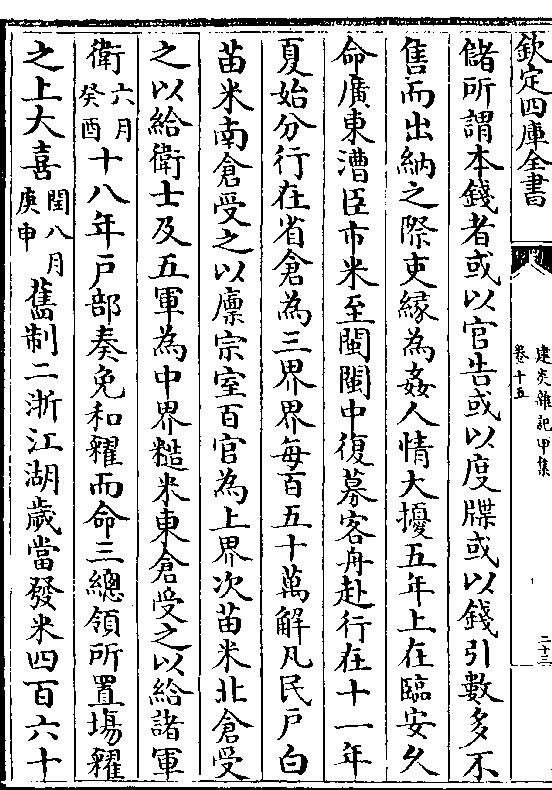 欽定四庫全書
建炎雜記甲集
卷十五
二十三
儲所謂本錢者或以官告或以度牒或以錢引數多不
售而出納之際吏緣為姦人情大擾五年上在臨安久
命廣東漕臣市米至閩閩中復募客舟赴行在十一年
夏始分行在省倉為三界界每百五十萬解凡民戸白
苗米南倉受之以廪宗室百官為上界次苗米北倉受
之以給衛士及五軍為中界糙米東倉受之以給諸軍
衛六月癸酉十八年戸部奏免和糴而命三總領所置場糴
之上大喜閏八月庚申舊制二浙江湖歲當發米四百六十